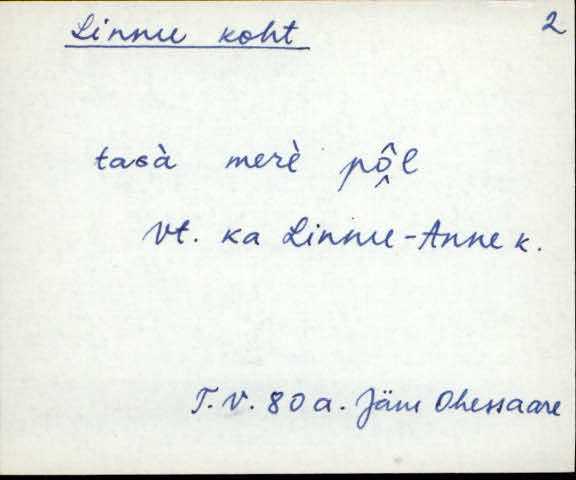 Linnu koht 2
tasà merè pô̭l
vt. ka Linnu-Anne k.
T.V. 80 a. Jäm Ohessaare